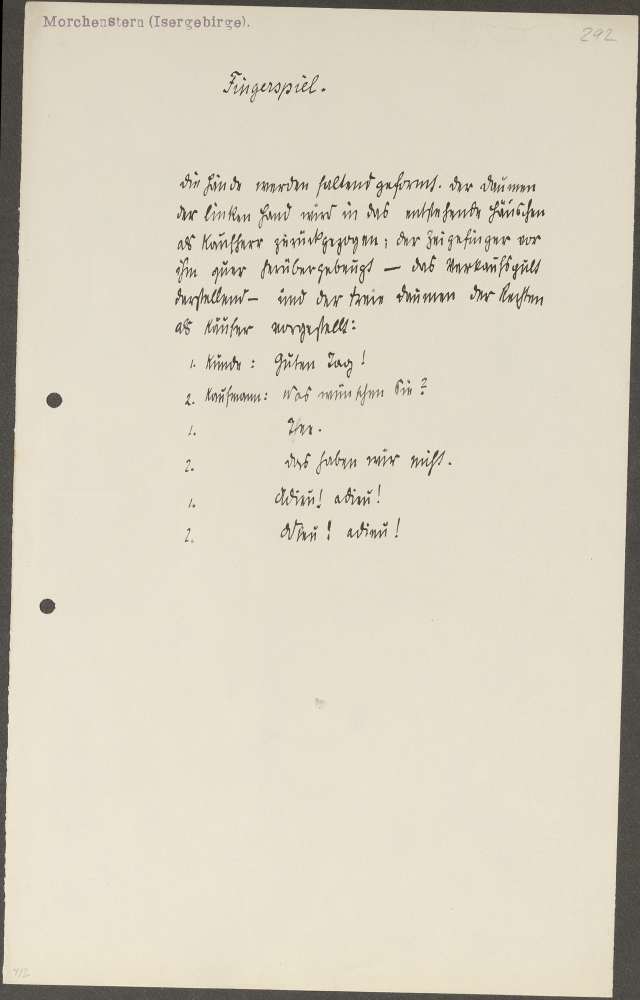 Morchenstern (Isergebirge).
292
Fingerspiel.
Die Hände werden faltend geformt. Der Daumen
der linken Hand wird in das entstehende Häuschen
als Kaufherr zurückgezogen; der Zeigefinger vor
ihm quer herübergebeugt — das Verkaufspult
darstellend — und der freie Daumen der Rechten
als Käufer vorgestellt:
1. Kunde: Guten Tag!
2. Kaufmann: Was wünschen Sie?
1. Tee.
2. Das haben wir nicht.
1. Adieu! adieu!
2. Adieu! adieu!